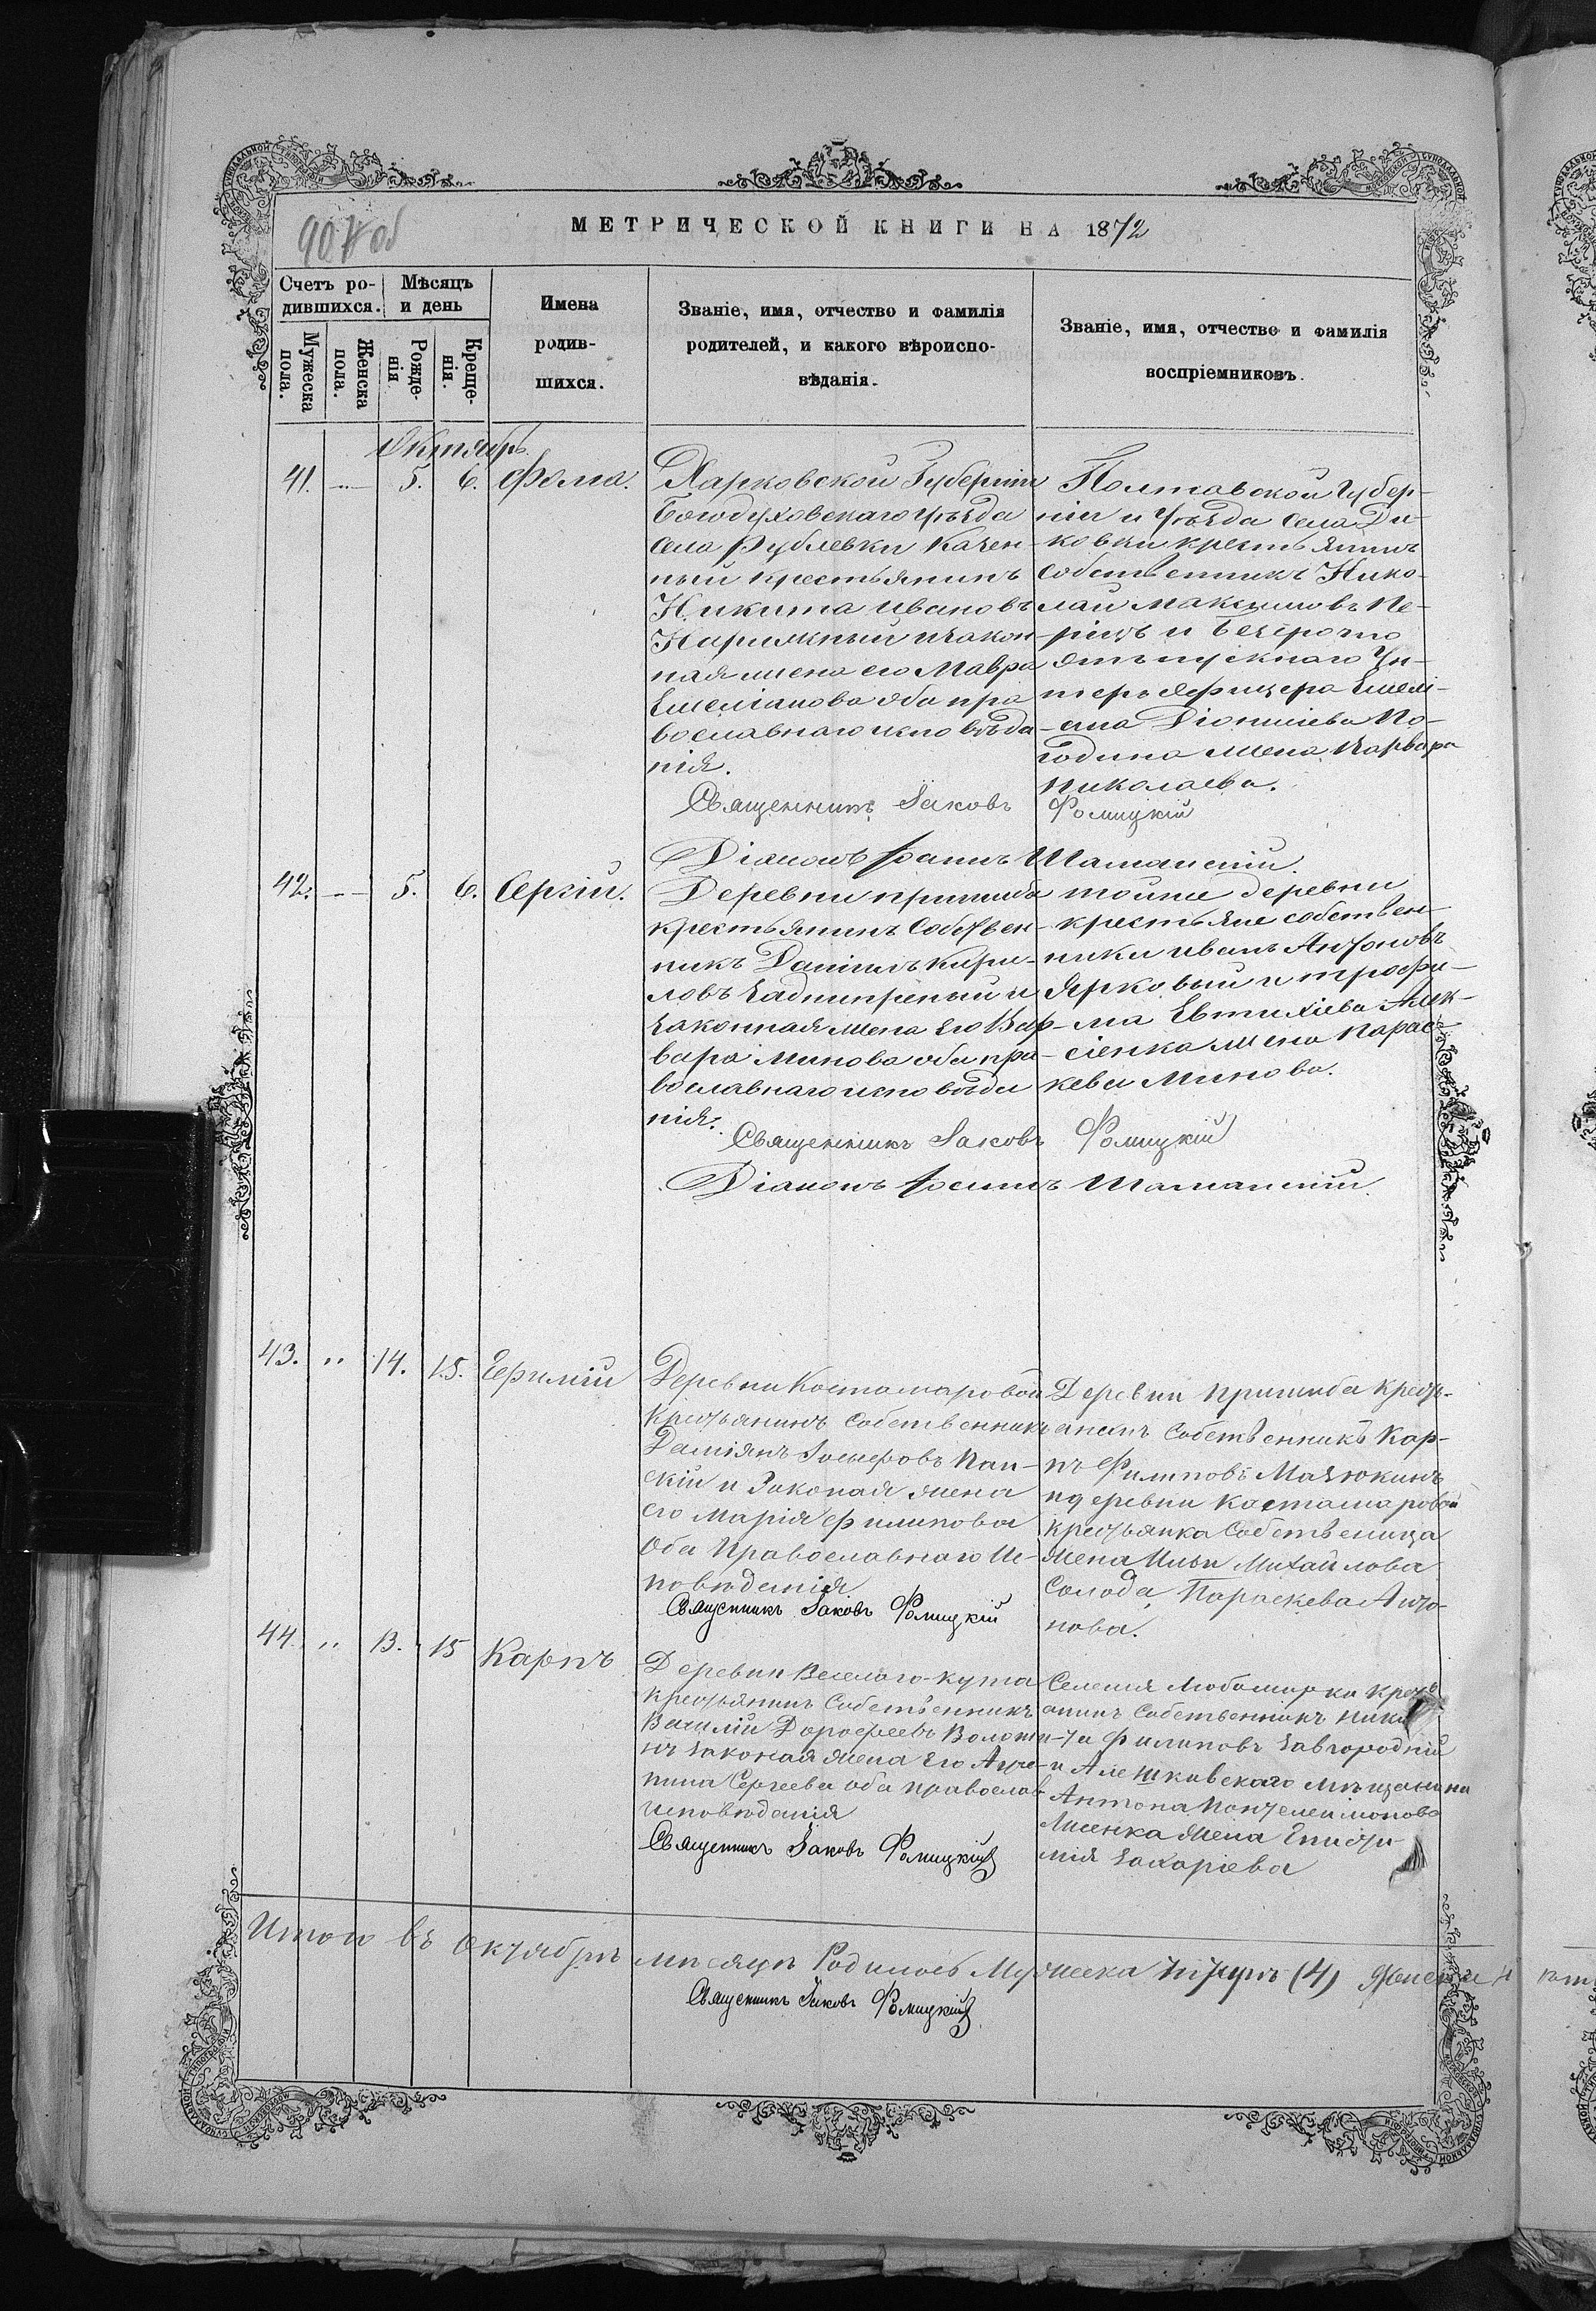 907 об
МЕТРИЧЕСКОЙ КНИГИ НА 1872
Счетъ ро-
дившихся.
Мѣсяцъ
и день
Имена
родив-
шихся.
Званіе, имя, отчество и фамилія
родителей, и какого вѣроиспо-
вѣданія.
Званіе, имя, отчество и фамилія
воспріемниковъ.
Мужеска
пола.
Женска
пола.
Рожде-
нія
Креще-
нія.
Октябрь
41. 5. 6. Фома.
Харковской Губерніи
Богодуховскаго Уѣзда
Села Рублевки Казен-
ный крестьянинъ
Никита Ивановъ
Нарижный и закон-
ная жена его Мавра
Емелианова оба пра
вославнаго исповѣда
нія.
Полтавской Губер-
ніи и Уѣзда села Ди-
ковки крестьянинъ
собственникъ Нико-
лай Максимовъ
и безсрочно
отпускнаго Ун-
теръ офицера Емелі-
ана Діонисіева По-
година жена Варвара
Николаева.
Священникъ Іаковъ Фомицкій
Діаконъ Шаманскій.
42. 5. 6. Сергій.
Деревни пришиба
крестьянинъ собствен-
никъ Даніилъ Кири-
ловъ Заднипреный и
законная жена его Вар-
вара Минова оба пра-
вославнаго исповѣда
нія.
тойже деревни
крестьяне собствен-
ники Иванъ Антоновъ
Ярковый и трофи-
ма Евтихіева Алек-
сіенка жена Парас-
кева Минова.
Священникъ Іаковъ Фомицкій
Діаконъ Шаманскій.
43. " 14. 15. Ефимій
Деревни Костомаровой
крестьянинъ собственникъ
Даміянъ Іосифовъ Пан-
скій и Законая жена
его Марія Филипова
Оба Православнаго Ис-
повѣданія
Священникъ Іаковъ Фомицкій
Деревни Пришиба крест-
янинъ Собственникъ Кар-
пъ Филиповъ Мазюкинъ
и деревни Костомаровой
крестьянка Собственица
жена Ильи Михайлова
Солода, Параскева Анто-
нова.
44. " 13. 15 Карпъ
Деревни Веселаго-кута
крестьянинъ Собственникъ
Василій Дорофеевъ
законая жена Его Агри-
пина Сергеева оба православ
исповѣданія
Священникъ Іаковъ Фомицкій
Селенія Любомирка крест
янинъ Собственникъ Ники
та Филиповъ Завгородній
и Алешковскаго мѣщанина
Антона Понтелеимонова
Лисенка жена Ефи
мія Захаріева
Итого въ Октябрѣ мѣсяцѣ Родилось Мужеска четыре (4) Женска
Священникъ Іаковъ Фомицкій